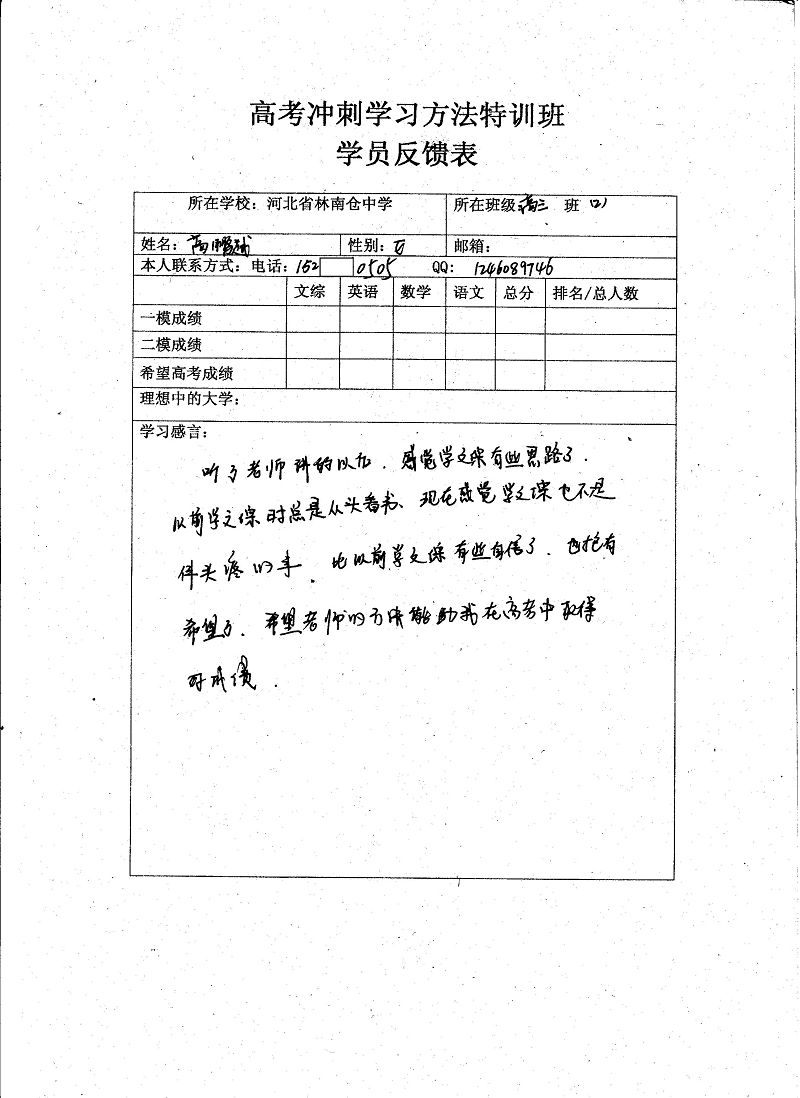 高考冲刺学习方法特训班
学员反馈表
所在学校：河北省林南仓中学 所在班级高三 班 (2)
姓名： 性别： 邮箱：
本人联系方式：电话：152 0505 QQ： 1246089746
文综 英语 数学 语文 总分 排名/总人数
一模成绩
二模成绩
希望高考成绩
理想中的大学：
学习感言：
听了老师讲的以后，感觉学文综有些思路了．
以前学文综时总是从头看书、现在感觉学文综也不是
件头疼的事．比以前学文综有些自信了．也抱有
希望了．希望老师的方法能助我在高考中取得
好成绩．